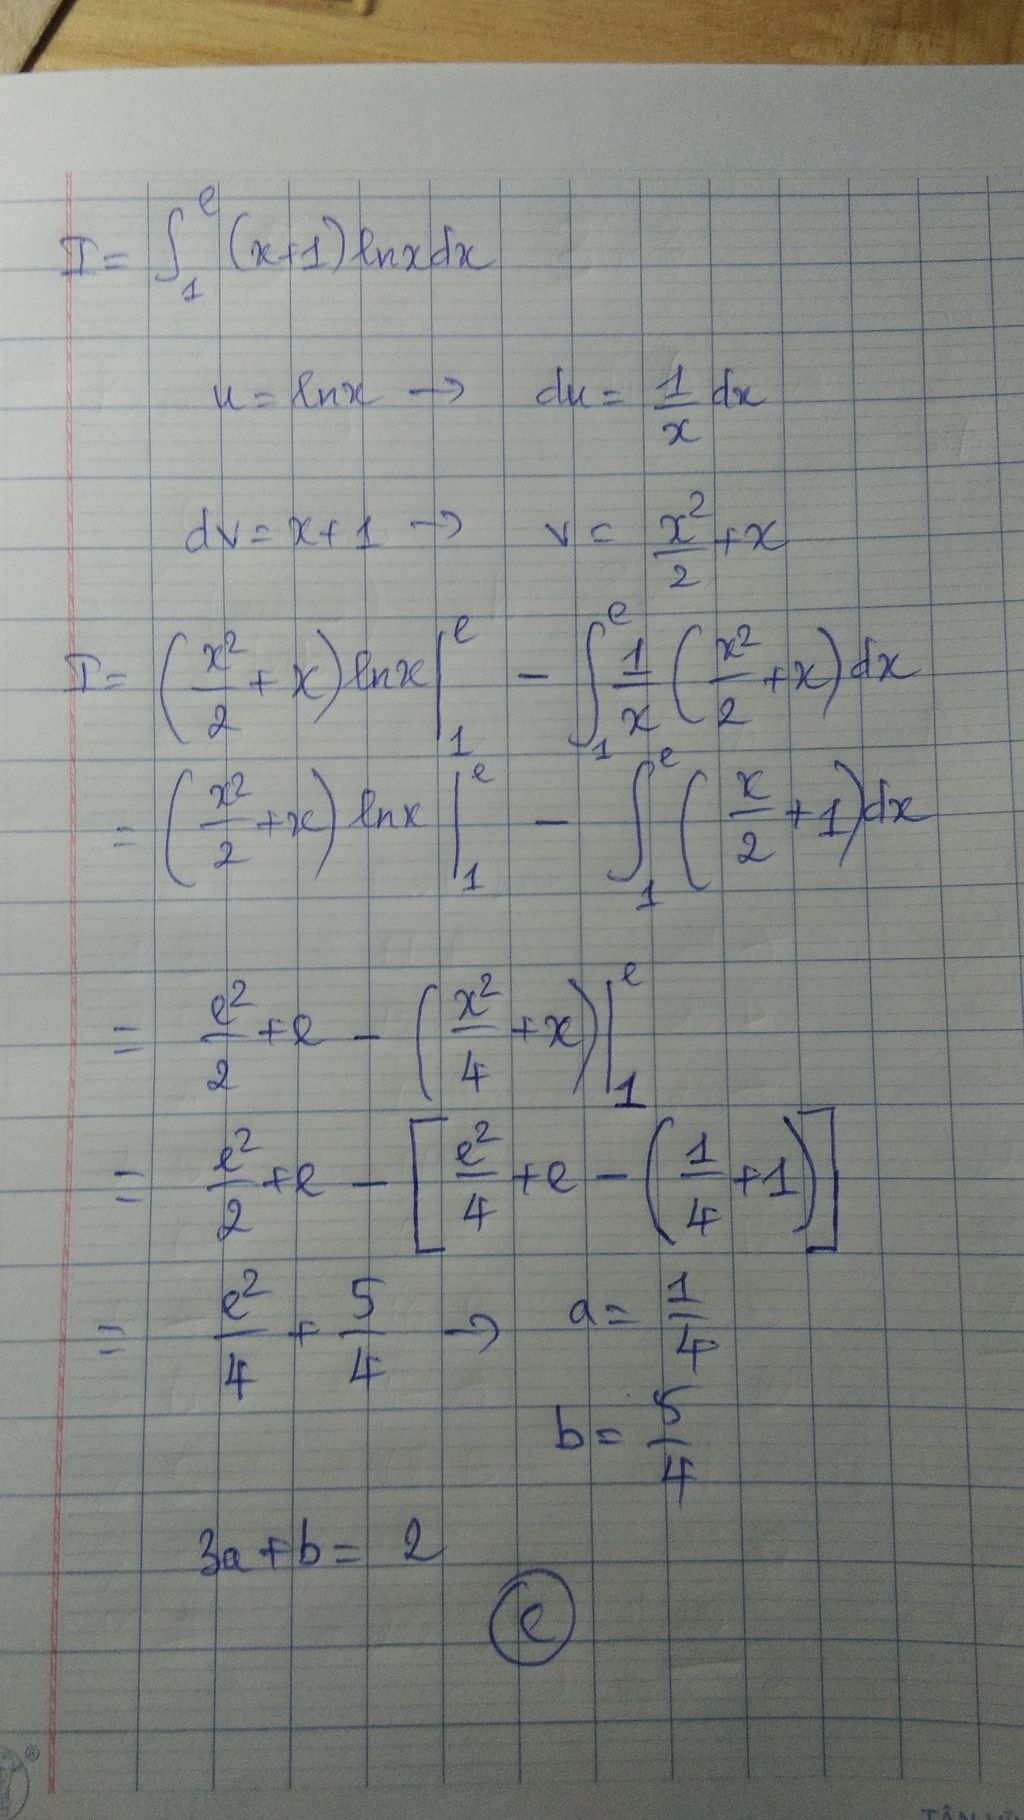 I = ∫₁ᵉ (x+1) lnx dx
u = lnx → du = 1/x dx
dv = x+1 → v = x²/2 + x
I = (x²/2 + x) lnx |₁ᵉ - ∫₁ᵉ 1/x (x²/2 + x) dx
= (x²/2 + x) lnx |₁ᵉ - ∫₁ᵉ (x/2 + 1) dx
= e²/2 + e - (x²/4 + x) |₁ᵉ
= e²/2 + e - [e²/4 + e - (1/4 + 1)]
= e²/4 + 5/4 → a = 1/4
b = 5/4
3a + b = 2
®